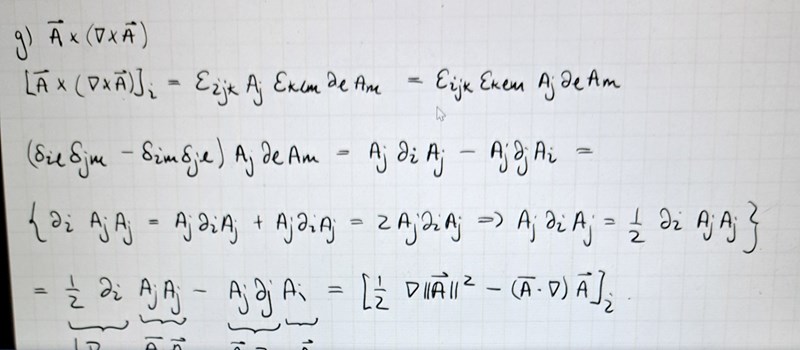 g) A⃗ × (∇×A⃗)
[A⃗ × (∇×A⃗)]ᵢ = εᵢⱼₖ Aⱼ εₖₗₘ ∂ₗ Aₘ = εᵢⱼₖ εₖₗₘ Aⱼ ∂ₗ Aₘ
(δᵢₗ δⱼₘ − δᵢₘ δⱼₗ) Aⱼ ∂ₗ Aₘ = Aⱼ ∂ᵢ Aⱼ − Aⱼ ∂ⱼ Aᵢ =
{∂ᵢ AⱼAⱼ = Aⱼ∂ᵢAⱼ + Aⱼ∂ᵢAⱼ = 2Aⱼ∂ᵢAⱼ => Aⱼ ∂ᵢ Aⱼ = 1/2 ∂ᵢ AⱼAⱼ}
= 1/2 ∂ᵢ AⱼAⱼ − Aⱼ∂ⱼ Aᵢ = [1/2 ∇‖A⃗‖² − (A⃗·∇) A⃗]ᵢ.